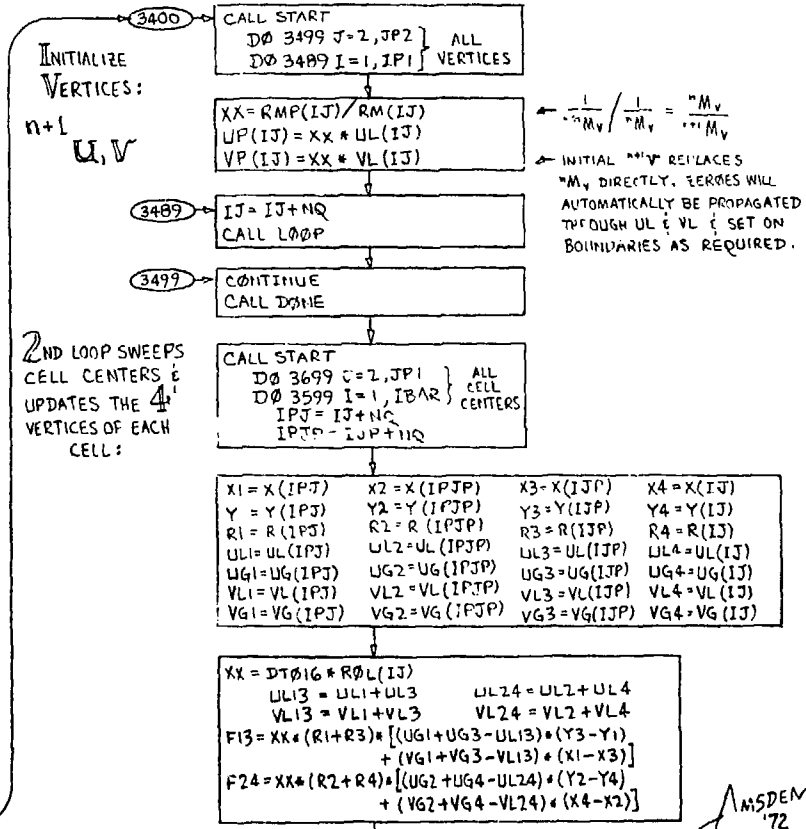 3400
CALL START
DØ 3499 J=2,JP2
DØ 3489 I=1,IP1
ALL
VERTICES
INITIALIZE
VERTICES:
n+1
U,V
XX=RMP(IJ)/RM(IJ)
UP(IJ)=XX*UL(IJ)
VP(IJ)=XX*VL(IJ)
1/n+1Mv / 1/nMv = nMv/n+1Mv
INITIAL n+1V REPLACES
nMv DIRECTLY. ZEROES WILL
AUTOMATICALLY BE PROPAGATED
THROUGH UL & VL & SET ON
BOUNDARIES AS REQUIRED.
3489
IJ=IJ+NQ
CALL LØØP
3499
CØNTINUE
CALL DØNE
2ND LOOP SWEEPS
CELL CENTERS &
UPDATES THE 4
VERTICES OF EACH
CELL:
CALL START
DØ 3699 J=2,JP1
DØ 3599 I=1,IBAR
ALL
CELL
CENTERS
IPJ=IJ+NQ
IPJP=IJP+NQ
X1=X(IPJ) X2=X(IPJP) X3=X(IJP) X4=X(IJ)
Y =Y(IPJ) Y2=Y(IPJP) Y3=Y(IJP) Y4=Y(IJ)
R1=R(IPJ) R2=R(IPJP) R3=R(IJP) R4=R(IJ)
UL1=UL(IPJ) UL2=UL(IPJP) UL3=UL(IJP) UL4=UL(IJ)
UG1=UG(IPJ) UG2=UG(IPJP) UG3=UG(IJP) UG4=UG(IJ)
VL1=VL(IPJ) VL2=VL(IPJP) VL3=VL(IJP) VL4=VL(IJ)
VG1=VG(IPJ) VG2=VG(IPJP) VG3=VG(IJP) VG4=VG(IJ)
XX=DTØ16*RØL(IJ)
UL13=UL1+UL3 UL24=UL2+UL4
VL13=VL1+VL3 VL24=VL2+VL4
F13=XX*(R1+R3)*[(UG1+UG3-UL13)*(Y3-Y1)
+(VG1+VG3-VL13)*(X1-X3)]
F24=XX*(R2+R4)*[(UG2+UG4-UL24)*(Y2-Y4)
+(VG2+VG4-VL24)*(X4-X2)]
AMSDEN
'72